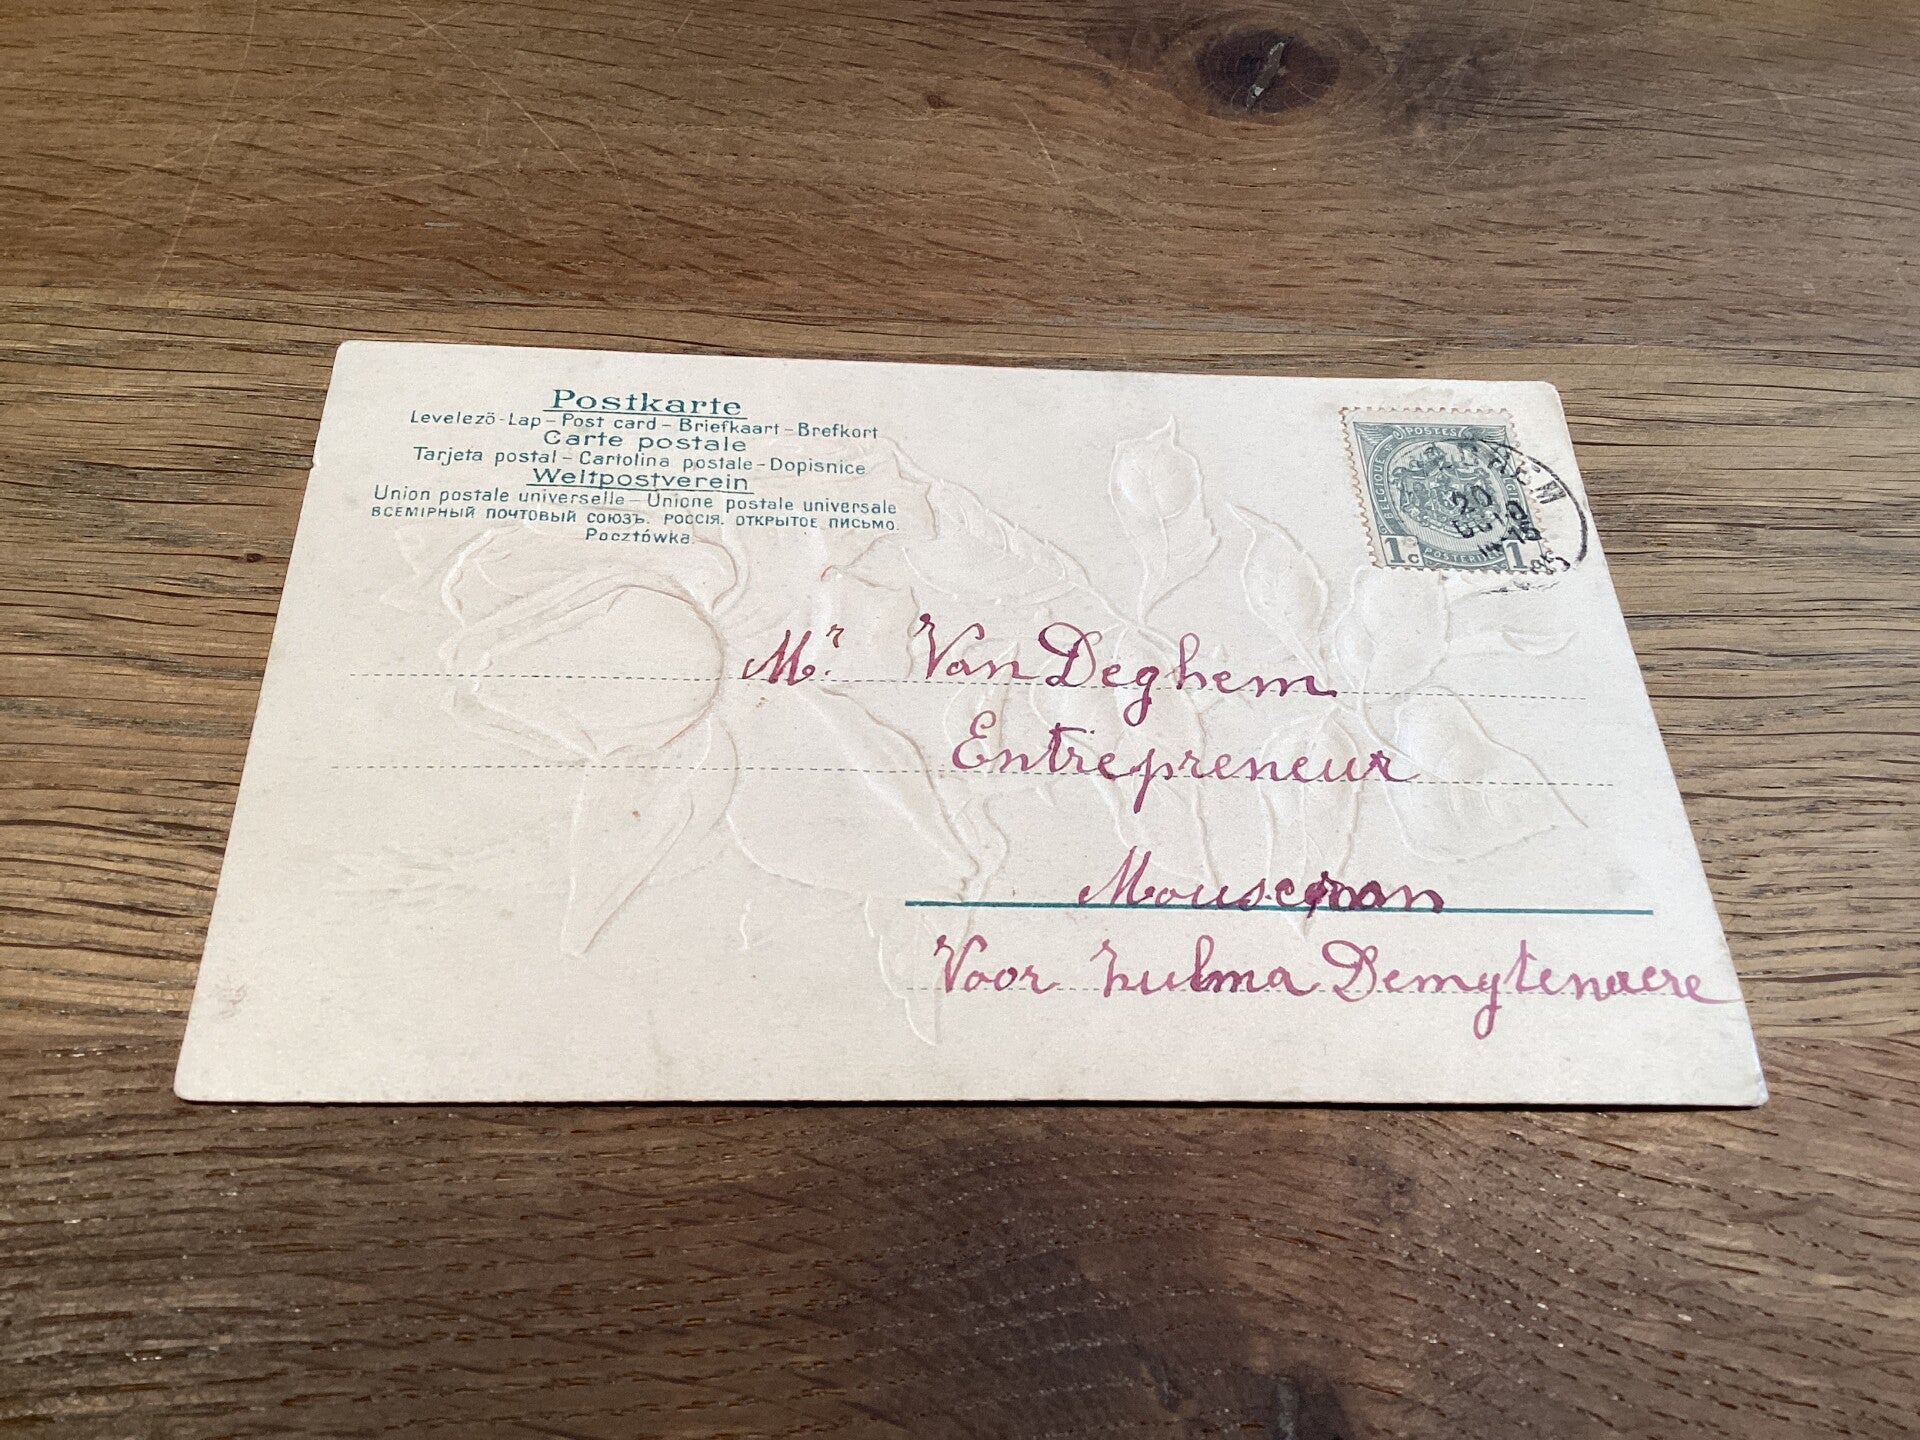 Postkarte
Levelező-Lap – Post card – Briefkaart – Brefkort
Carte postale
Tarjeta postal – Cartolina postale – Dopisnice
Weltpostverein
Union postale universelle – Unione postale universale
ВСЕМІРНЫЙ ПОЧТОВЫЙ СОЮЗЪ. РОССІЯ. ОТКРЫТОЕ ПИСЬМО.
Pocztówka.
POSTES
BELGIQUE
1c POSTERIJEN 1c
20
Mr. Van Deghem
Entrepreneur
Mouscron
Voor Zulma Demytenaere